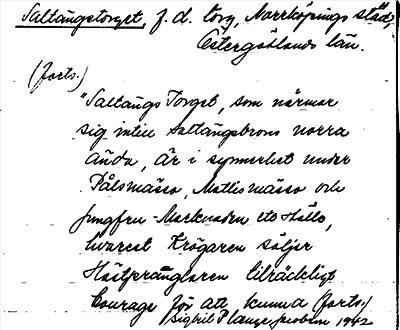 Saltängstorget, f.d. torg, Norrköpings stad,
Östergötlands län.
(forts.)
"Saltängs Torget, som närmar
sig intill Saltängsbrons norra
ända, är i synnerhet under
Pålsmässo, Matlismässo och
Jungfru Markvaden ett ställe,
hvarest Krögaren säljer
Hästprånglaren tilräckligt
Courage för att kunna (forts.)
Sigbrit Plange Jacobson 1942